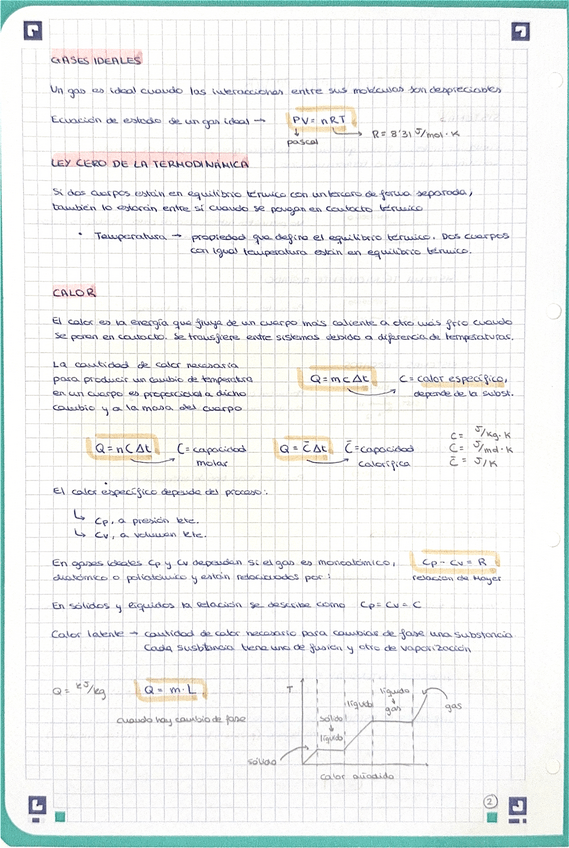 GASES IDEALES
Un gas es ideal cuando las interacciones entre sus moléculas son despreciables
Ecuación de estado de un gas ideal → PV = nRT
pascal
R = 8'31 J/mol·K
LEY CERO DE LA TERMODINÁMICA
Si dos cuerpos están en equilibrio térmico con un tercero de forma separada,
también lo estarán entre sí cuando se pongan en contacto térmico
• Temperatura → propiedad que define el equilibrio térmico. Dos cuerpos
con igual temperatura están en equilibrio térmico.
CALOR
El calor es la energía que fluye de un cuerpo más caliente a otro más frío cuando
se ponen en contacto. Se transfiere entre sistemas debido a diferencia de temperaturas.
La cantidad de calor necesaria
para producir un cambio de temperatura
en un cuerpo es proporcional a dicho
cambio y a la masa del cuerpo
Q = m c Δt
C = calor específico,
depende de la subst.
Q = n C Δt
C = capacidad
molar
Q = C̄ Δt
C̄ = capacidad
calorífica
C = J/kg·K
C = J/mol·K
C̄ = J/K
El calor específico depende del proceso:
↳ Cp, a presión kte.
↳ Cv, a volumen kte.
En gases ideales Cp y Cv dependen si el gas es monoatómico,
diatómico o poliatómico y están relacionados por:
Cp - Cv = R
relación de Mayer
En sólidos y líquidos la relación se describe como Cp = Cv = C
Calor latente → cantidad de calor necesario para cambiar de fase una substancia.
Cada substancia tiene uno de fusión y otro de vaporización
Q = kJ/kg
Q = m·L
cuando hay cambio de fase
T
sólido
sólido
↓
líquido
líquido
líquido
↓
gas
gas
calor añadido
2